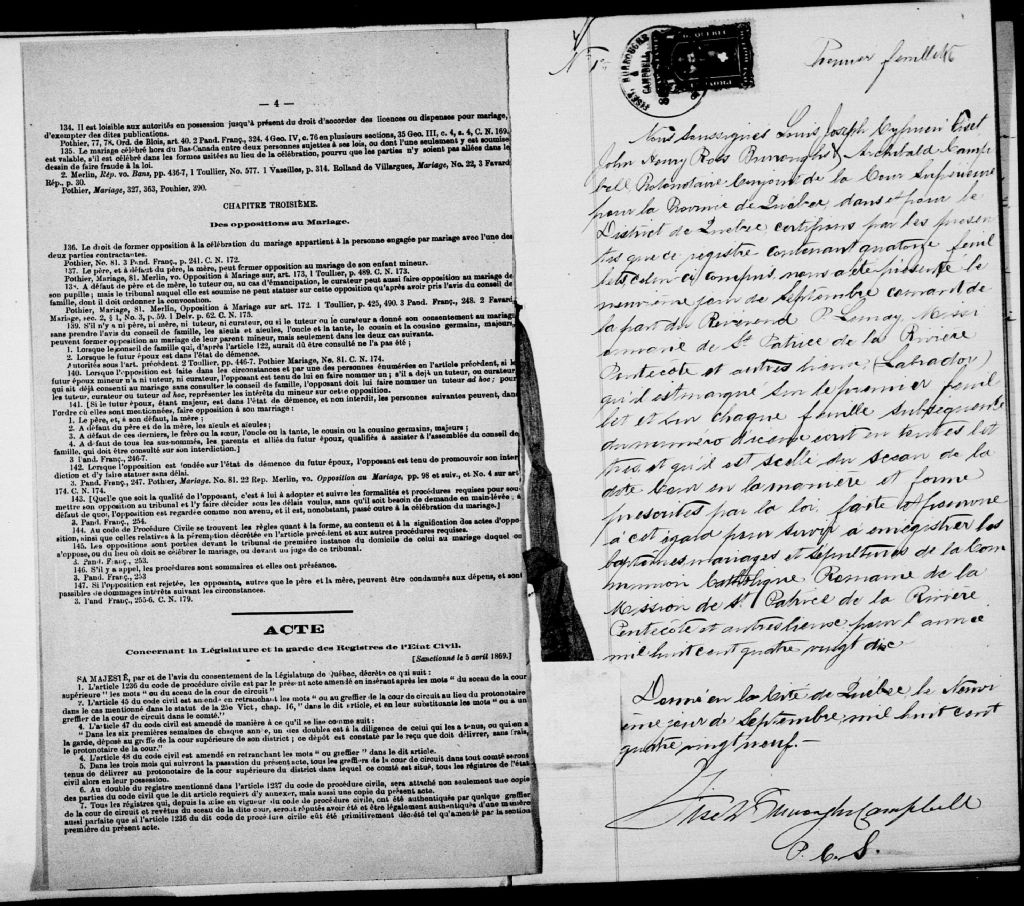 — 4 —
134. Il est loisible aux autorités en possession jusqu'à présent du droit d'accorder des licences ou dispenses pour mariage,
d'exempter des dites publications.
Pothier, 77, 78. Ord. de Blois, art. 40. 2 Pand. Franç., 324. 4 Geo. IV, c. 76 en plusieurs sections, 35 Geo. III, c. 4, s. 4, C. N. 169.
135. Le mariage célébré hors du Bas-Canada entre deux personnes sujettes à ses lois, ou dont l'une seulement y est soumise
est valable, s'il est célébré dans les formes usitées au lieu de la célébration, pourvu que les parties n'y soient pas allées dans le
dessein de faire fraude à la loi.
2. Merlin, Rép. vo. Bans, pp. 436-7, 1 Toullier, No. 577. 1 Vazeilles, p. 314. Rolland de Villargues, Mariage, No. 22, 3 Favard
Rép., p. 30.
Pothier, Mariage, 327, 363, Pouhier, 390.
CHAPITRE TROISIÈME.
Des oppositions au Mariage.
136. Le droit de former opposition à la célébration du mariage appartient à la personne engagée par mariage avec l'une des
deux parties contractantes.
Pothier, No. 81. 3 Pand. Franç., p. 241. C. N. 172.
137. Le père, et à défaut du père, la mère, peut former opposition au mariage de son enfant mineur.
Pothier, Mariage, 81. Merlin, vo. Opposition à Mariage sur, art. 173, 1 Toullier, p. 489. C. N. 173.
138. A défaut de père et de mère, le tuteur ou, au cas d'émancipation, le curateur peut aussi faire opposition au mariage de
son pupille; mais le tribunal auquel elle est soumise ne peut statuer sur cette opposition qu'après avoir pris l'avis du conseil de
famille, dont il doit ordonner la convocation.
Pothier, Mariage, 81. Merlin, Opposition à Mariage sur art. 172. 1 Toullier, p. 425, 490. 3 Pand. Franç., 248. 2 Favard
Mariage, sec. 2, § 1, No. 3, p. 59. 1 Delv. p. 62. C. N. 175.
139. S'il n'y a ni père, ni mère, ni tuteur, ni curateur, ou si le tuteur ou le curateur a donné son consentement au mariage
sans prendre l'avis du conseil de famille, les aïeuls et aïeules, l'oncle et la tante, le cousin et la cousine germains, majeurs,
peuvent former opposition au mariage de leur parent mineur, mais seulement dans les deux cas suivants.
1. Lorsque le conseil de famille qui, d'après l'article 122, aurait dû être consulté ne l'a pas été;
2. Lorsque le futur époux est dans l'état de démence.
Autorités sous l'art. précédent. 2 Toullier, pp. 446-7. Pothier Mariage, No. 81. C. N. 174.
140. Lorsque l'opposition est faite dans les circonstances et par une des personnes énumérées en l'article précédent, si le
futur époux mineur n'a ni tuteur, ni curateur, l'opposant est tenu de lui en faire nommer un; s'il a déjà un tuteur, ou curateur,
qui ait déjà consenti au mariage sans consulter le conseil de famille, l'opposant doit lui faire nommer un tuteur ad hoc; pour
les tuteur, curateur ou tuteur ad hoc, représenter les intérêts du mineur sur cette opposition.
141. [Si le futur époux, étant majeur, est dans l'état de démence, et non interdit, les personnes suivantes peuvent, dans
l'ordre où elles sont mentionnées, faire opposition à son mariage:
1. Le père, et, à son défaut, la mère;
2. A défaut du père et de la mère, les aïeuls et aïeules;
3. A défaut de ces derniers, le frère ou la sœur, l'oncle ou la tante, le cousin ou la cousine germains, majeurs;
4. A défaut de tous les sus-nommés, les parents et alliés du futur époux, qualifiés à assister à l'assemblée du conseil de
famille, qui doit être consulté sur son interdiction.]
3 Pand. Franç., 246-7.
142. Lorsque l'opposition est fondée sur l'état de démence du futur époux, l'opposant est tenu de promouvoir son inter-
diction et d'y faire statuer sans délai.
3. Pand. Franç., 247. Pothier, Mariage, No. 81. 22 Rep. Merlin, vo. Opposition au Mariage, pp. 98 et suiv., et No. 4 sur art.
174. C. N. 174.
143. [Quelle que soit la qualité de l'opposant, c'est à lui à adopter et suivre les formalités et procédures requises pour sou-
mettre son opposition au tribunal et l'y faire décider sous les délais voulus, sans qu'il soit besoin de demande en main-levée; à
défaut de quoi, l'opposition est regardée comme non avenu, et il est, nonobstant, passé outre à la célébration du mariage.]
3. Pand. Franç., 254.
144. Au code de Procédure Civile se trouvent les règles quant à la forme, au contenu et à la signification des actes d'oppo-
sition, ainsi que celles relatives à la péremption décrétée en l'article précédent et aux autres procédures requises.
145. Les oppositions sont portées devant le tribunal de première instance du domicile de celui au mariage duquel on
s'oppose, ou du lieu où doit se célébrer le mariage, ou devant un juge de ce tribunal.
3. Pand. Franç., 253.
146. S'il y a appel, les procédures sont sommaires et elles ont préséance.
3. Pand. Franç., 253
147. Si l'opposition est rejetée, les opposants, autres que le père et la mère, peuvent être condamnés aux dépens, et sont
passibles de dommages intérêts suivant les circonstances.
3. Pand Franç., 255-6. C. N. 179.
ACTE
Concernant la Législature et la garde des Registres de l'Etat Civil.
[Sanctionné le 5 avril 1869.]
SA MAJESTÉ, par et de l'avis du consentement de la Législature de Québec, décrète ce qui suit:
1. L'article 1236 du code de procédure civile est par le présent acte amendé en insérant après les mots "du sceau de la cour
supérieure" les mots "ou du sceau de la cour de circuit"
2. L'article 45 du code civil est amendé en retranchant les mots "ou au greffier de la cour de circuit au lieu du protonotaire
dans le cas mentionné dans le statut de la 25e Vict, chap. 16," dans le dit article, et en leur substituant les mots "ou à un
greffier de la cour de circuit dans le comté."
4. L'article 47 du code civil est amendé de manière à ce qu'il se lise comme suit:
"Dans les six premières semaines de chaque année, un des doubles est à la diligence de celui qui les a tenus, ou qui en a
la garde, déposé au greffe de la cour supérieure de son district; ce dépôt est constaté par le reçu que doit délivrer, sans frais,
le protonotaire de la cour."
4. L'article 48 du code civil est amendé en retranchant les mots "ou greffier" dans le dit article.
5. Dans les trois mois qui suivront la passation du présent acte, tous les greffiers de la cour de circuit dans tout comté seront
tenus de délivrer au protonotaire de la cour supérieure du district dans lequel ce comté est situé, tous les régistres de l'état
civil alors en leur possession.
6. Au double du régistre mentionné dans l'article 1237 du code de procédure civile, sera attaché non seulement une copie
des parties du code civil que le dit article requiert d'y annexer, mais aussi une copie du présent acte.
7. Tous les régistres qui, depuis la mise en vigueur du code de procédure civile, ont été authentiqués par quelque greffier
de la cour de circuit et revêtus du sceau de la dite cour, seront réputés avoir été et être légalement authentiqués d'une manière
aussi parfaite que si l'article 1236 du dit code de procédure civile eût été primitivement décrété tel qu'amendé par la section
première du présent acte.
QUEBEC
FISET, BURROUGHS
& CAMPBELL
Premier feuillet
Nous soussignés Louis Joseph Cyprien Fiset
John Henry Ross Burroughs & Archibald Camp
bell Protonotaire Conjoint de la Cour Supérieure
pour la Province de Québec dans et pour le
District de Québec certifions par les présen
tes que ce registre contenant quatorze feuil
lets, celui ci compris, nous a été présenté le
neuvième jour de Septembre courant de
la part du Révérend P. Lemay, Missi
onnaire de St Patrice de la Rivière
Pentecôte et autres lieux, (Labrador)
qu'il est marqué sur le premier feuil
let et sur chaque feuille subséquente
du numéro d'icelui écrit en toutes let
tres, et qu'il est scellé du sceau de la
dite Cour en la manière et forme
prescrites par la loi, faite et pourvue
à cet égard pour servir à enregistrer les
baptêmes, mariages et sépultures de la Com
munion Catholique Romaine de la
Mission de St Patrice de la Rivière
Pentecôte et autres lieux, pour l'année
mil huit cent quatre vingt dix
Donné en la Cité de Québec le Neuvi
ème jour de Septembre, mil huit cent
quatre vingt neuf.-
Fiset Burroughs Campbell
P. C. S.